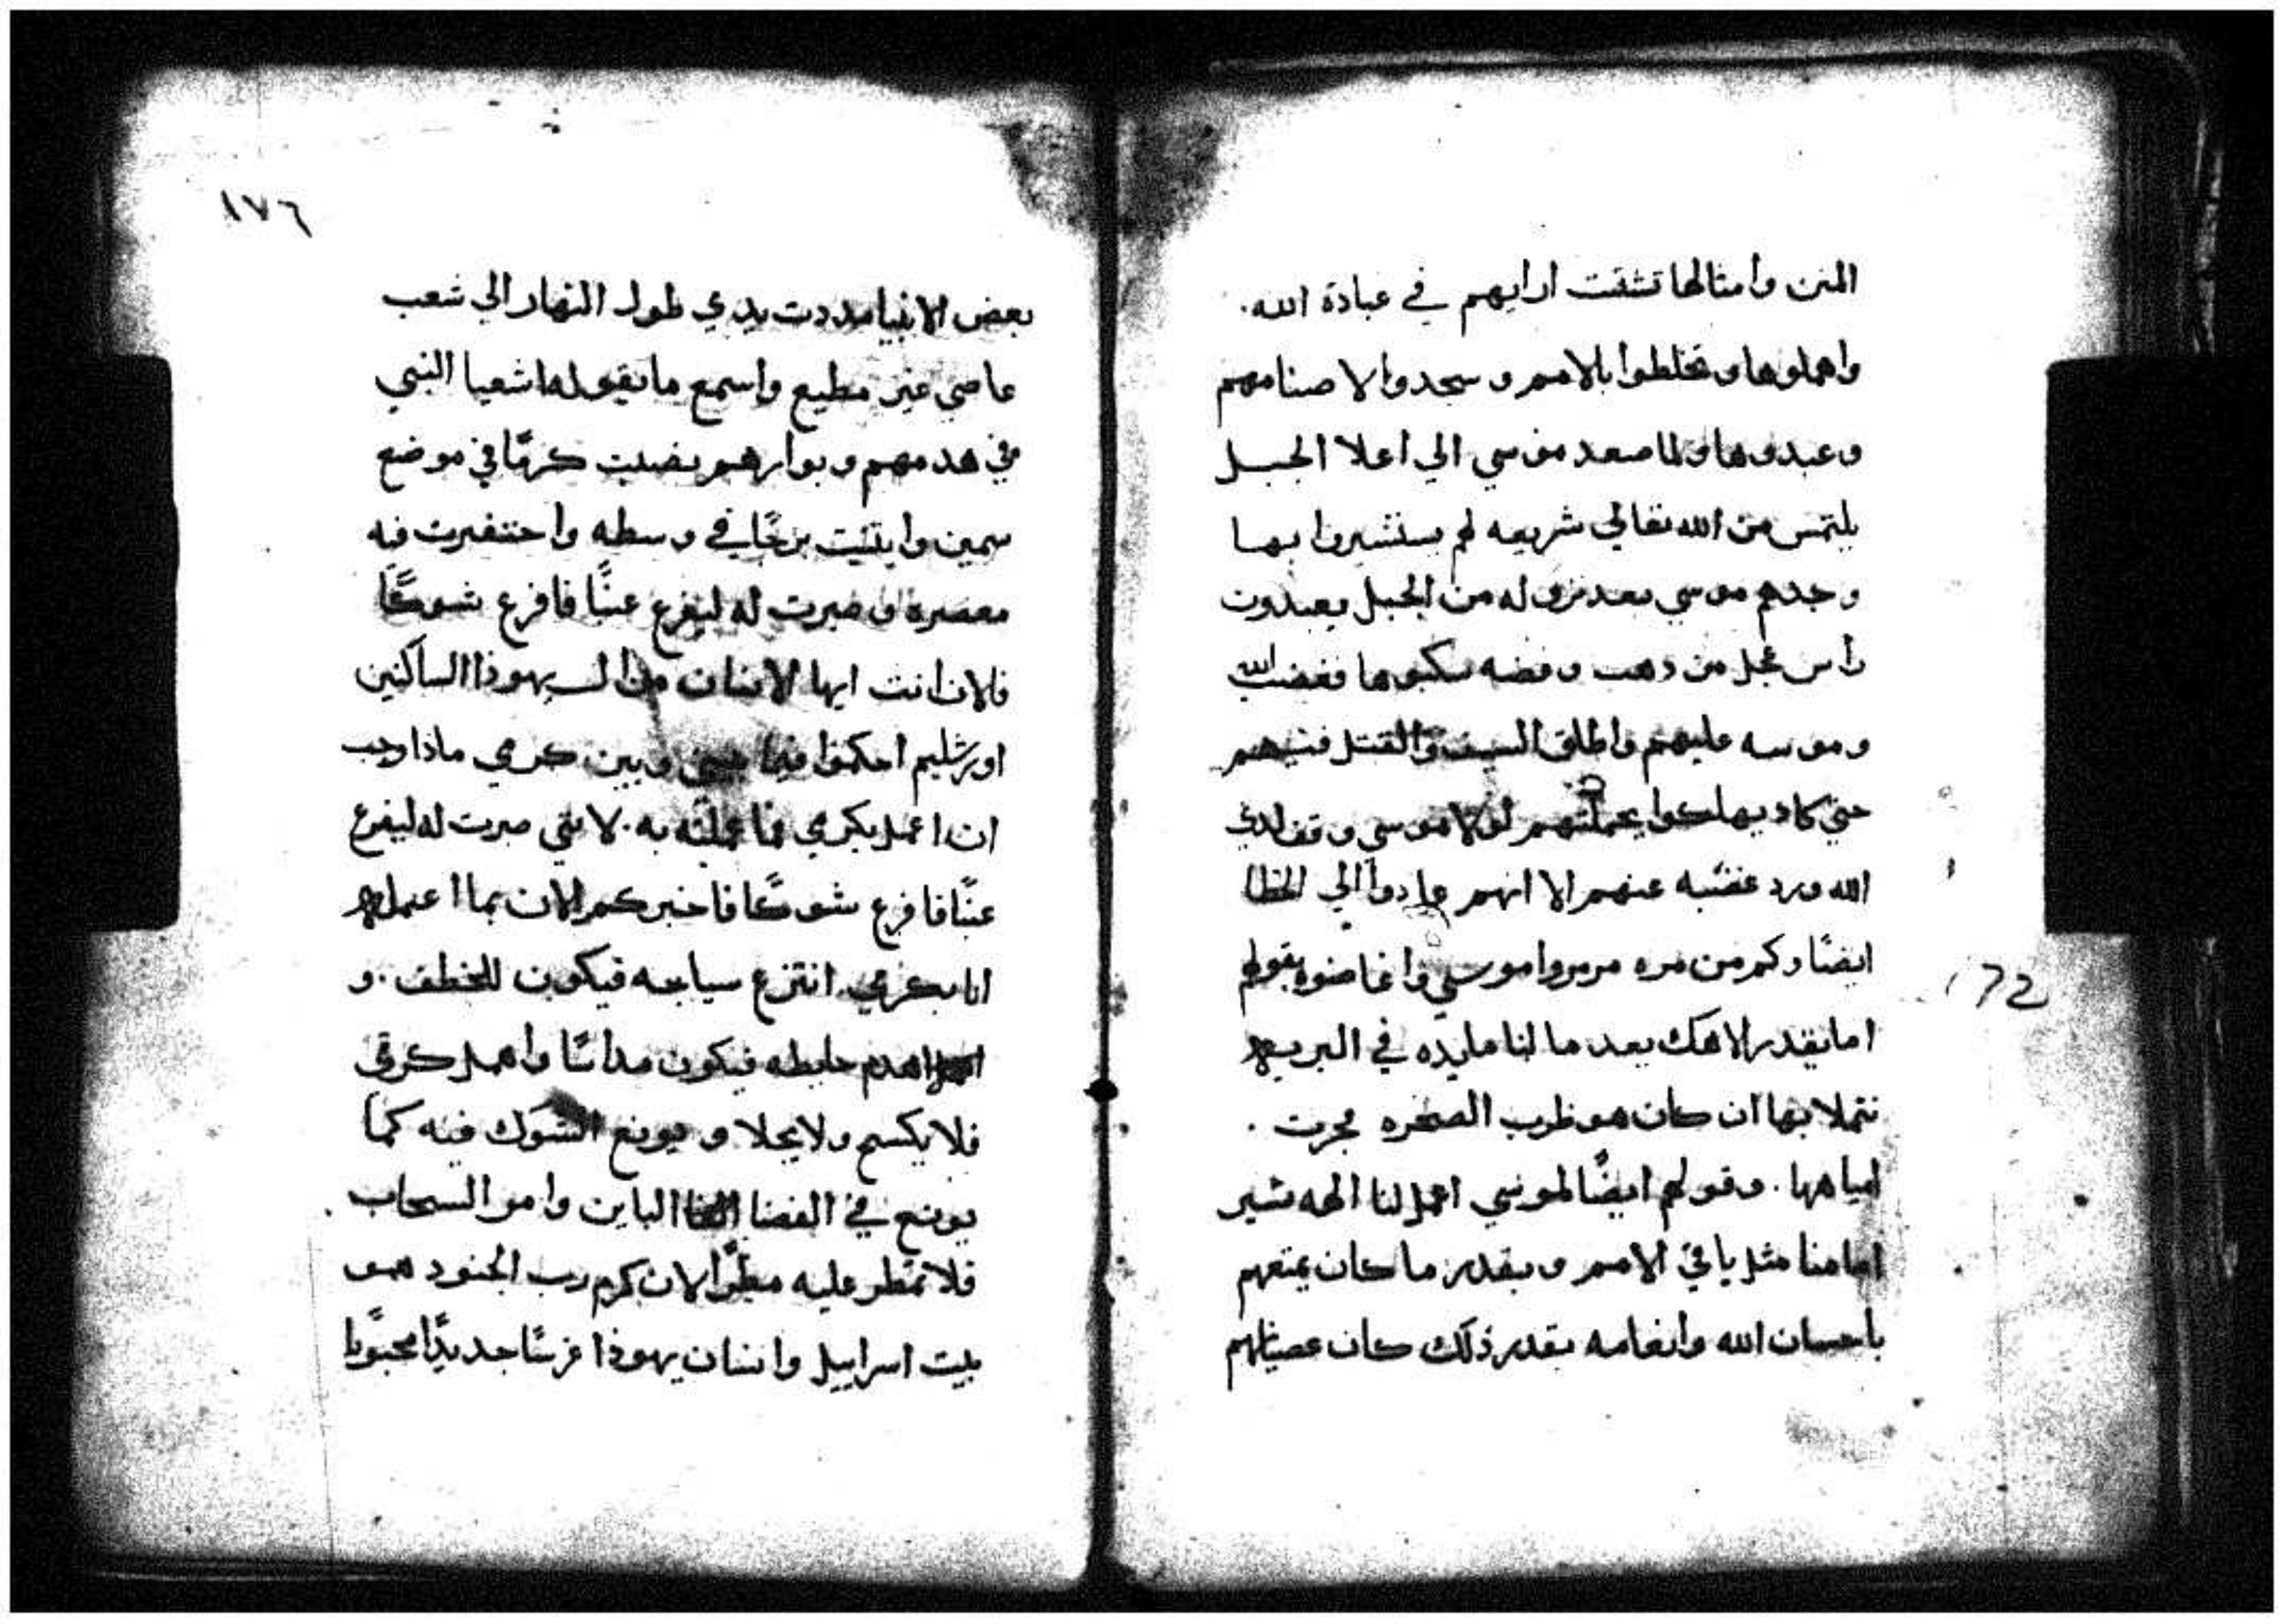 المنن وامثالها تشتت ارايهم في عبادة الله.
واهملوها وتخلطوا بالامم وسجدوا لاصنامهم
وعبدوها ولما صعد موسي الي اعلا الجبل
يلتمس من الله تعالي شريعه لم يستشيروا بها
وجدهم موسي بعد نزوله من الجبل يعبدون
رأس عجل من دهب وفضه سكبوها فغضب الله
وموسه عليهم واطلق السيف والقتل فيهم
حتي كاد يهلكوا بجملتهم لولا موسي وقف لدي
الله ورد غضبه عنهم الا انهم عادوا الي الخطا
ايضًا وكم من مره مرمروا موسي واغاضوه بقولهم
اما يقدر الاهك يعد ما لنا مايده في البريه
نتملا بها ان كان هو ظرب الصخره فجرت .
امياهها . وقولهم ايضًا لموسي اعمل لنا الهه تسير
امامنا مثل باقي الامم وبقدر ما كان يمتعهم
باحسان الله وانعامه بقدر ذلك كان عصيانهم
172
١٧٦
بعض الانبيا مددت يدي طول النهار الي شعب
عاصي غير مطيع واسمع ما يقوله اشعيا النبي
في هدمهم وبوارهم نصبت كرمًا في موضع
سمين وابتنيت برجًا في وسطه واحتفرت فيه
معصره وصبرت له ليفرع عنبًا فافرع شوكًا
فلان انت ايها الانسان من ال يهوذا الساكنين
اورشليم احكموا فيما بيني وبين كرمي ماذا وجب
ان اعمل بكرمي فما عملته به. لانني صبرت له ليفرع
عنبًا فافرع شوكًا فاخبركم الان بما اعمل
انا بكرمي انتزع سياجه فيكون للخطف . و
اهدم حايطه فيكون مداسًا واهمل كرمي
فلا يكسح ولا يحلا و يونع الشوك فيه كما
يونع في الفضا الباين وامر السحاب .
فلا تمطر عليه مطرًا لان كرم رب الجنود هو
بيت اسراييل وانسان يهوذا غرسًا جديدًا محبوبا